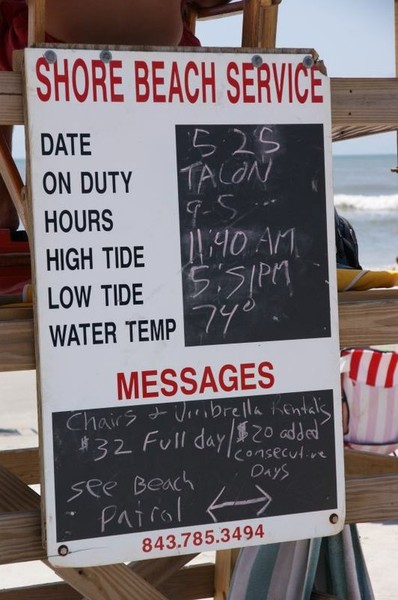 SHORE BEACH SERVICE
DATE 5 25
ON DUTY TACON
HOURS 9-5
HIGH TIDE 11:40 AM
LOW TIDE 5:51PM
WATER TEMP 74°
MESSAGES
Chairs & Umbrella Rentals
$32 Full day/$20 added
consecutive
Days
See Beach
Patrol
843.785.3494